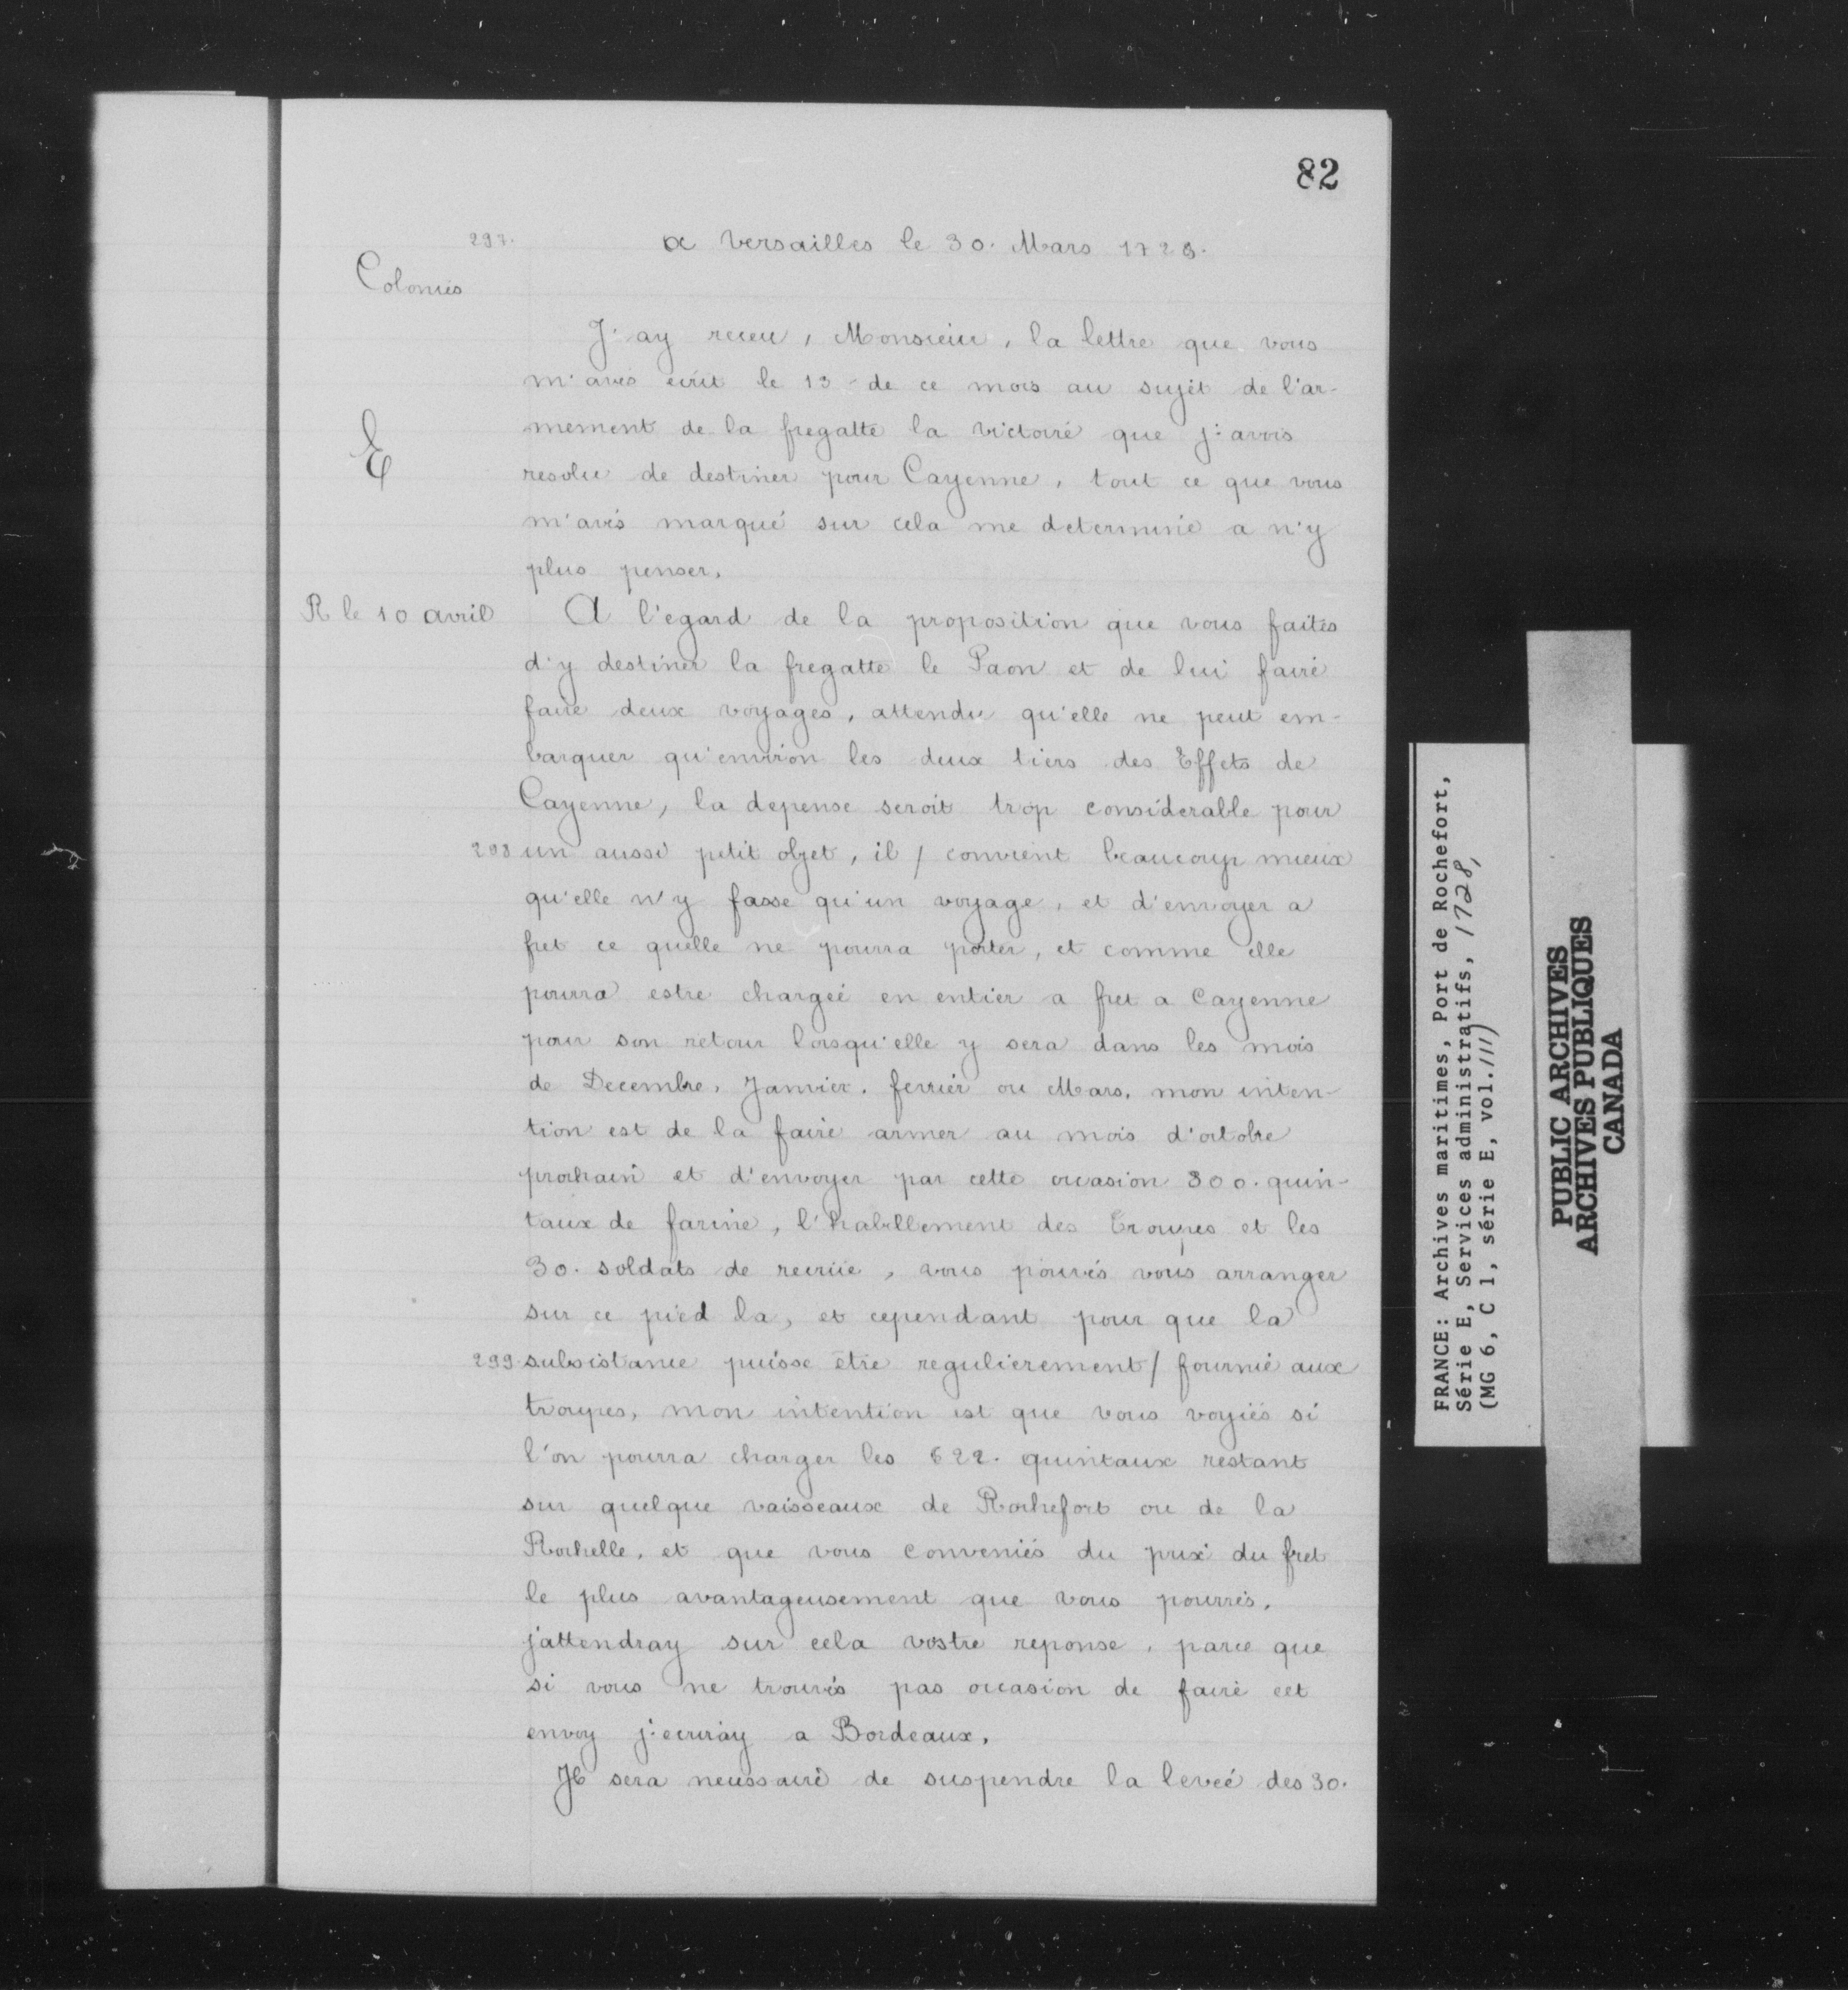 82
297. a Versailles le 30. Mars 1728.
Colonies
J'ay receu, Monsieur, la lettre que vous
m'avés écrit le 13 de ce mois au sujet de l'ar-
mement de la fregatte la victoire que j'avois
E
resolu de destiner pour Cayenne, tout ce que vous
m'avés marqué sur cela me determine a n'y
plus penser.
R le 10 avril A l'egard de la proposition que vous faites
d'y destiner la fregatte le Paon et de lui faire
faire deux voyages, attendu qu'elle ne peut em-
barquer qu'environ les deux tiers des Effets de
Cayenne, la depense seroit trop considerable pour
298 un aussi petit objet, il / convient beaucoup mieux
qu'elle n'y fasse qu'un voyage, et d'envoyer a
fret ce quelle ne pourra porter, et comme elle
pourra estre chargée en entier a fret a Cayenne
pour son retour lorsqu'elle y sera dans les mois
de Decembre, Janvier, fevrier ou Mars, mon inten-
tion est de la faire armer au mois d'octobre
prochain et d'envoyer par cette occasion 300. quin-
taux de farine, l'habillement des troupes et les
30. soldats de recrüe, vous pouvés vous arranger
sur ce pied la, et cependant pour que la
299 subsistance puisse être regulierement / fournie aux
troupes, mon intention est que vous voyiés si
l'on pourra charger les 622. quintaux restant
sur quelque vaisseaux de Rochefort ou de la
Rochelle, et que vous conveniés du prix du fret
le plus avantageusement que vous pourrés.
j'attendray sur cela vostre reponse, parce que
si vous ne trouvés pas occasion de faire cet
envoy j'ecriray a Bordeaux.
Il sera necessaire de suspendre la levée des 30.
FRANCE: Archives maritimes, Port de Rochefort,
Série E, Services administratifs, 1728,
(MG 6, C 1, série E, vol. 111)
PUBLIC ARCHIVES
ARCHIVES PUBLIQUES
CANADA